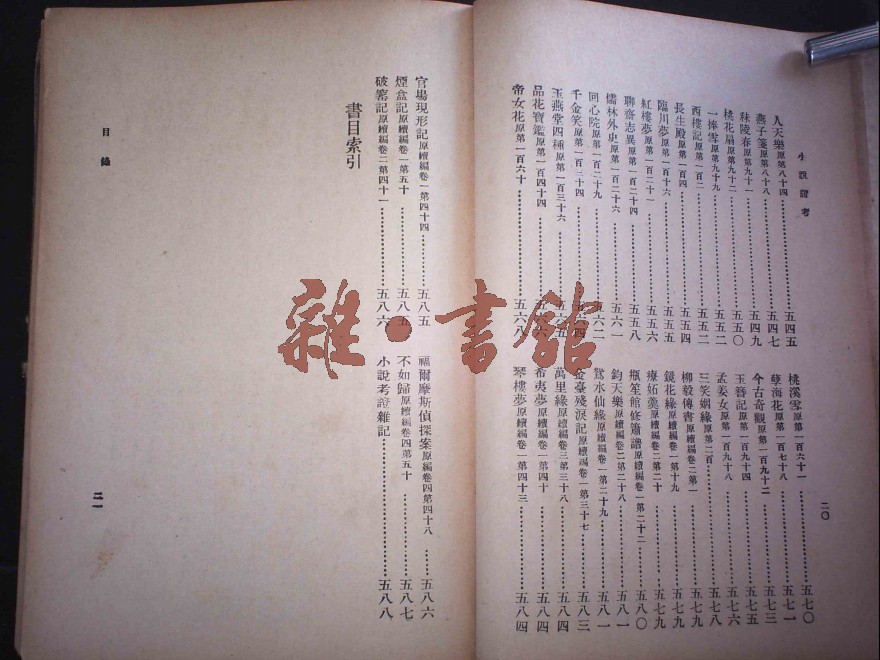 小說證考
人天樂原第八十四……五四五
燕子箋原第八十八……五四七
秣陵春原第九十一……五四九
桃花扇原第九十二……五五〇
一捧雪原第九十九……五五二
西樓記原第一百二……五五二
長生殿原第一百四……五五四
臨川夢原第一百十六……五五五
紅樓夢原第一百二十一……五五六
聊齋志異原第一百二十四……五五八
儒林外史原第一百二十六……五六一
回心院原第一百二十九……五六二
千金笑原第一百三十四
玉燕堂四種原第一百三十六
品花寶鑑原第一百四十四
帝女花原第一百六十……五六八
桃溪雪原第一百六十一……五七〇
孽海花原第一百七十八……五七一
今古奇觀原第一百九十二……五七三
玉簪記原第一百九十四……五七五
孟姜女原第一百九十八……五七六
三笑姻緣原第二百……五七八
柳毅傳書原續編卷二第一……五七九
鏡花緣原續編卷一第十九……五七九
療妬羹原續編卷一第二十……五七九
瓶笙館修簫譜原續編卷一第二十二……五八〇
鈞天樂原續編卷二第二十八……五八一
鴛水仙緣原續編卷一第二十九……五八一
金臺殘淚記原續編卷一第三十七……五八三
萬里緣原續編卷三第三十八……五八四
希夷夢原續編卷一第四十……五八四
琴樓夢原續編卷一第四十三……五八四
二〇
官場現形記原續編卷一第四十四……五八五
煙盒記原續編卷一第五十……五八五
破窰記原續編卷二第四十一……五八六
福爾摩斯偵探案原編卷四第四十八……五八六
不如歸原續編卷四第五十……五八七
小說考證雜記……五八八
書目索引
目錄
二一
雜·書館